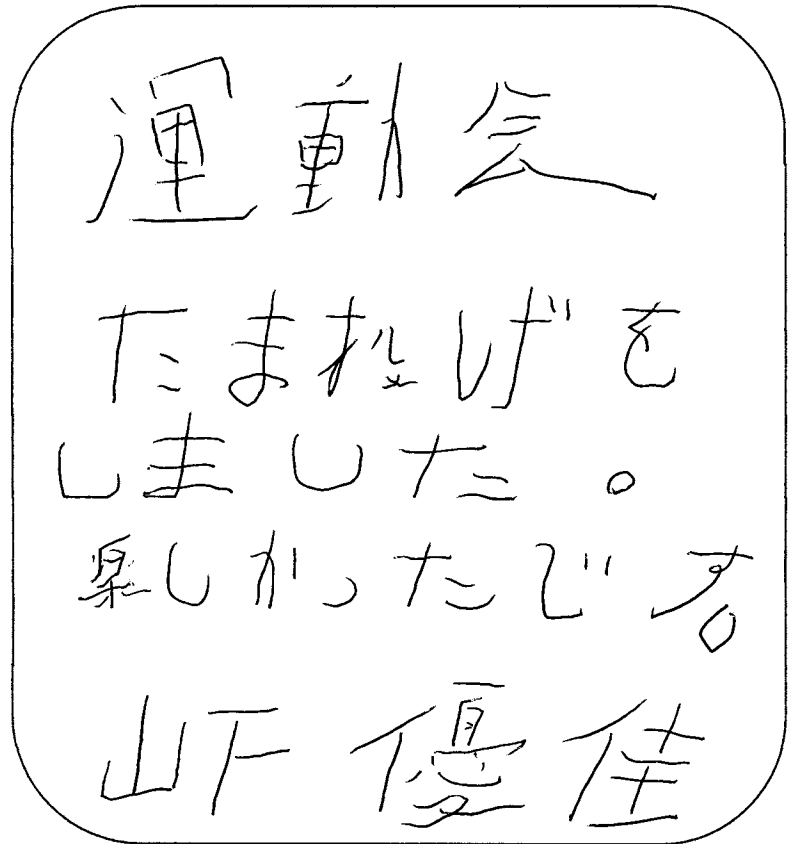 運動会
たま投げを
しました。
楽しかったです。
山下 優佳